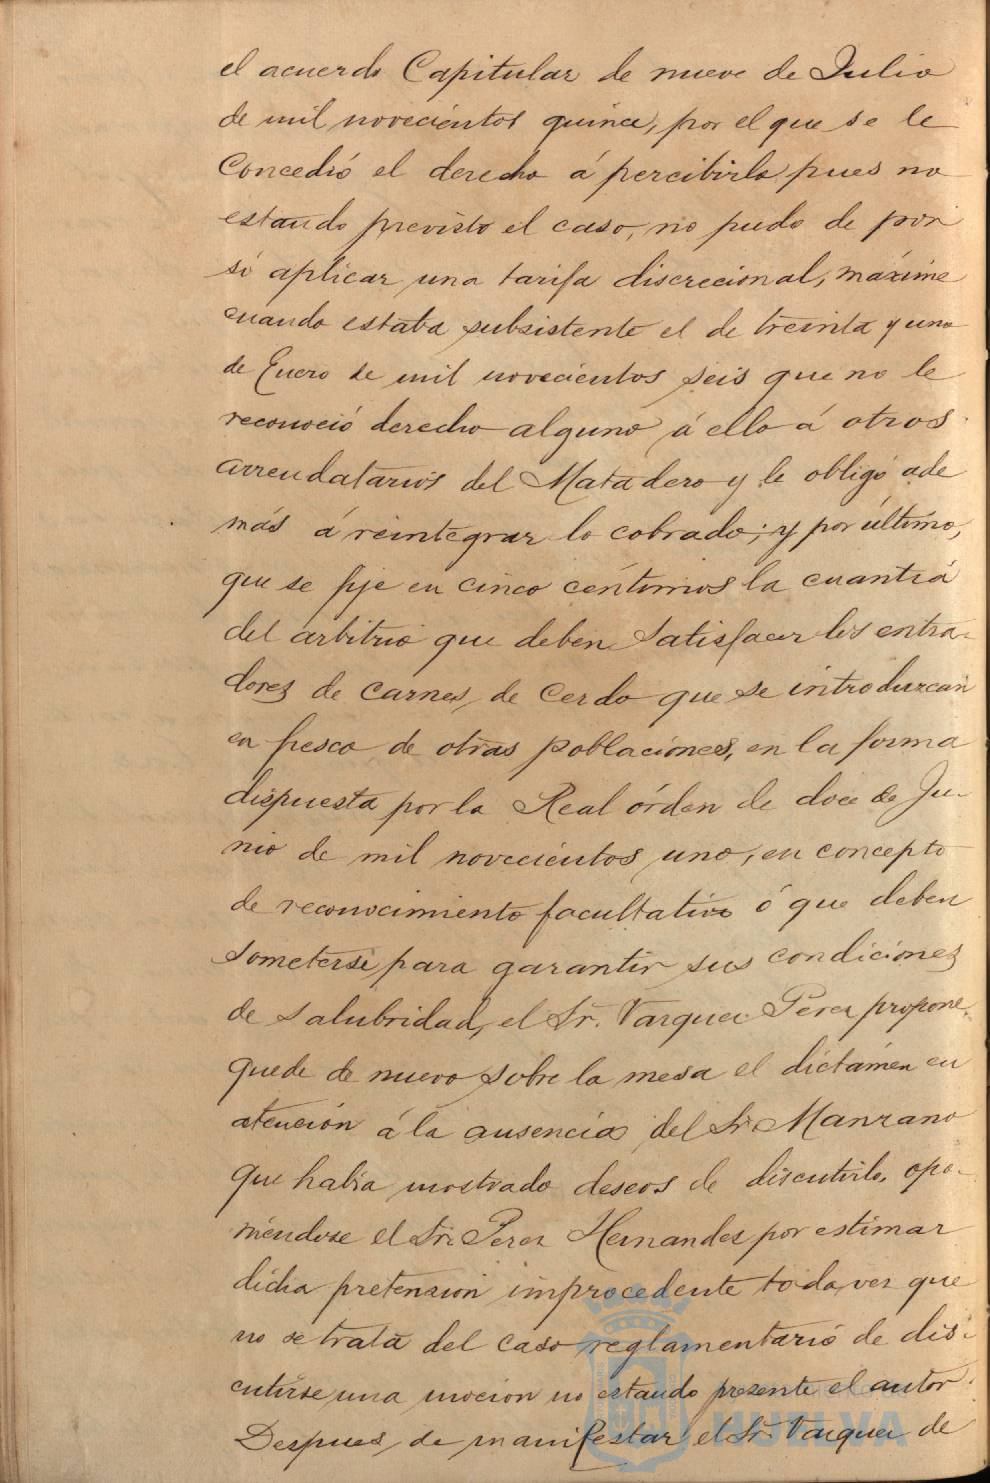 el acuerdo Capitular de nueve de Julio
de mil novecientos quince, por el que se le
Concedió el derecho á percibirla pues no
estando previsto el caso, no pudo de por
sí aplicar una tarifa discrecional, máxime
cuando estaba subsistente el de treinta y uno
de Enero de mil novecientos seis que no le
reconoció derecho alguno á ello á otros
arrendatarios del Matadero y le obligó ade
más á reintegrar lo cobrado; y por último,
que se fije en cinco céntimos la cuantía
del arbitrio que deben satisfacer los entra-
dores de carnes, de Cerdo que se introduzcan
en fresco de otras poblaciones, en la forma
dispuesta por la Real órden de doce de Ju-
nio de mil novecientos uno, en concepto
de reconocimiento facultativo ó que deben
someterse para garantir sus condiciones
de salubridad, el Sr. Vazquez Perez propone
quede de nuevo sobre la mesa el dictámen en
atención á la ausencia del Sr. Manzano
que había mostrado deseos de discutirlo, opo-
niéndose el Sr. Perez Hernandez por estimar
dicha pretension improcedente toda vez que
no se trata del caso reglamentario de dis-
cutirse una mocion no estando presente el autor.
Despues, de manifestar el Sr. Vazquez de
HUELVA